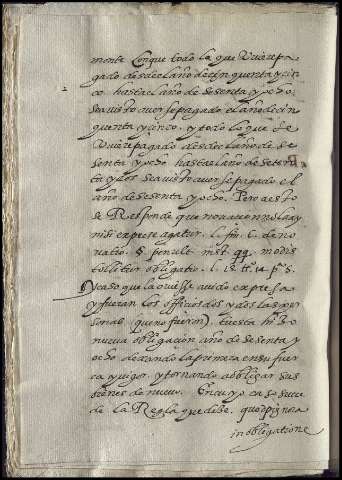 monte Conque todo lo que Uviere pa
gado desde el año de cinquenta y cin
co hasta el año de sesenta y ocho.
sea visto averse pagado el año de cin
quenta y cinco. y todo lo que se
Uviere pagado desde el año de se
senta y ocho hasta el año de seten
ta y dos sea visto averse pagado el
año de sesenta y ocho. Pero a esto
se Responde que no
nisi exprese agatur. l. fin. C. de no
vatio. § penult inst. qq. modis
tollitur obligatio. l. 15. tt. 14 p. 5.
y caso que la ouiese auido expresa
y fueran los officios dos y dos las per
sonas (que no fueron).
nueva obligacion año de sesenta y
ocho dexando la primera en su fuer
ça y vigor y tornando a obligar sus
bienes de nuevo. En cuyo caso
de la Regla que dize. quod pignora
in obligatione